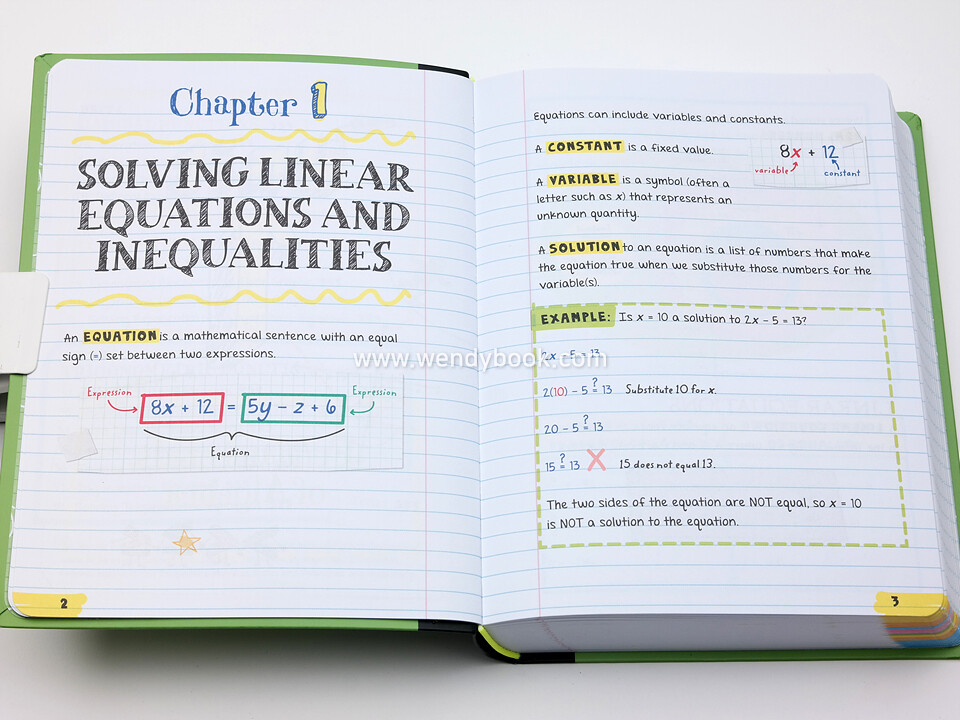 Chapter 1
SOLVING LINEAR
EQUATIONS AND
INEQUALITIES
An EQUATION is a mathematical sentence with an equal
sign (=) set between two expressions.
Expression
8x + 12 = 5y – z + 6
Expression
Equation
2
Equations can include variables and constants.
A CONSTANT is a fixed value.
8x + 12
variable
constant
A VARIABLE is a symbol (often a
letter such as x) that represents an
unknown quantity.
A SOLUTION to an equation is a list of numbers that make
the equation true when we substitute those numbers for the
variable(s).
EXAMPLE: Is x = 10 a solution to 2x – 5 = 13?
2x – 5 = 13
2(10) – 5 ≟ 13 Substitute 10 for x.
20 – 5 ≟ 13
15 ≟ 13 X 15 does not equal 13.
The two sides of the equation are NOT equal, so x = 10
is NOT a solution to the equation.
3
www.wendybook.com